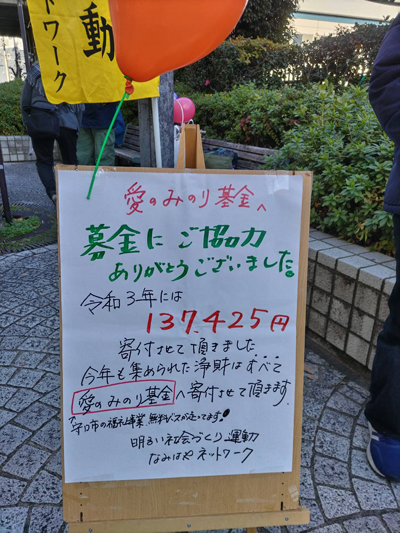 動
トワーク
愛のみのり基金へ
募金にご協力
ありがとうございました。
令和3年には
137,425円
寄付させて頂きました
今年も集められた浄財はすべて
愛のみのり基金へ寄付させて頂きます。
守口市の福祉事業 無料バスが走ってます!
明るい社会づくり運動
なみはやネットワーク